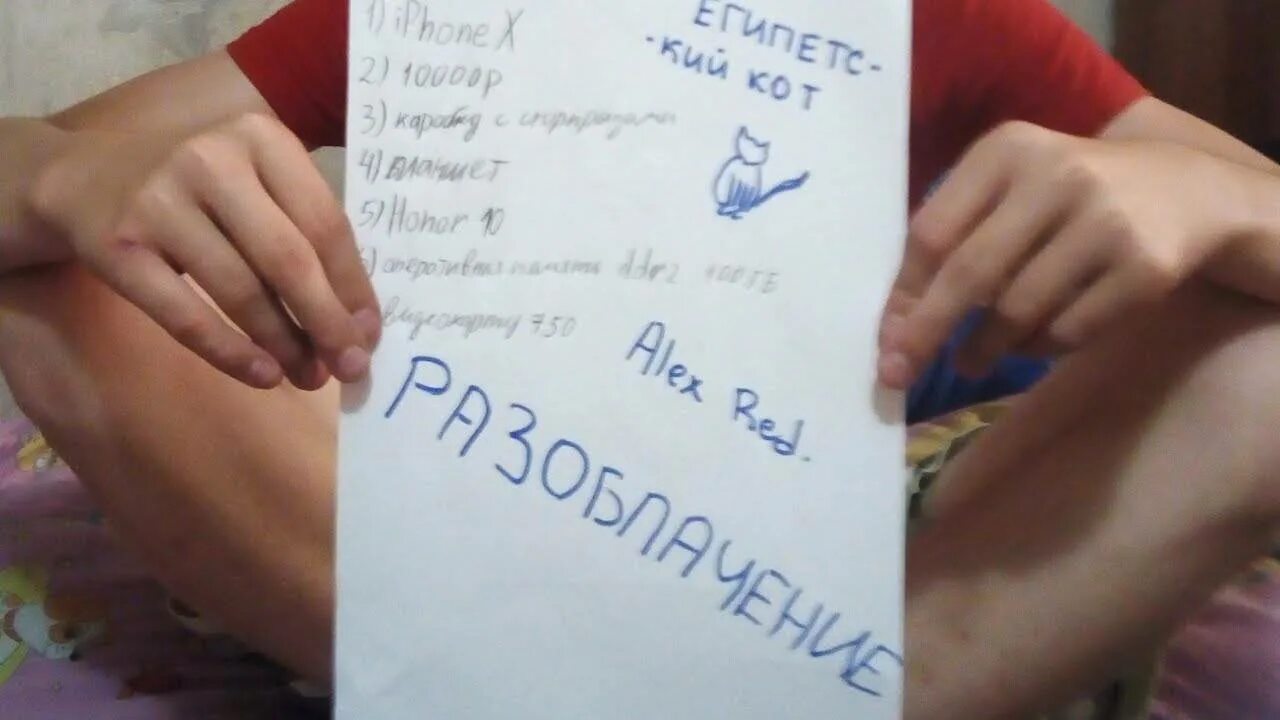 1) iPhone X
2) 10000р
3) каробку с сюрпризами
4) планшет
5) Honor 10
6) оперативная память ddr2 100ГБ
видеокарту 750
ЕГИПЕТС-
-КИЙ КОТ
Alex Red.
РАЗОБЛАЧЕНИЕ